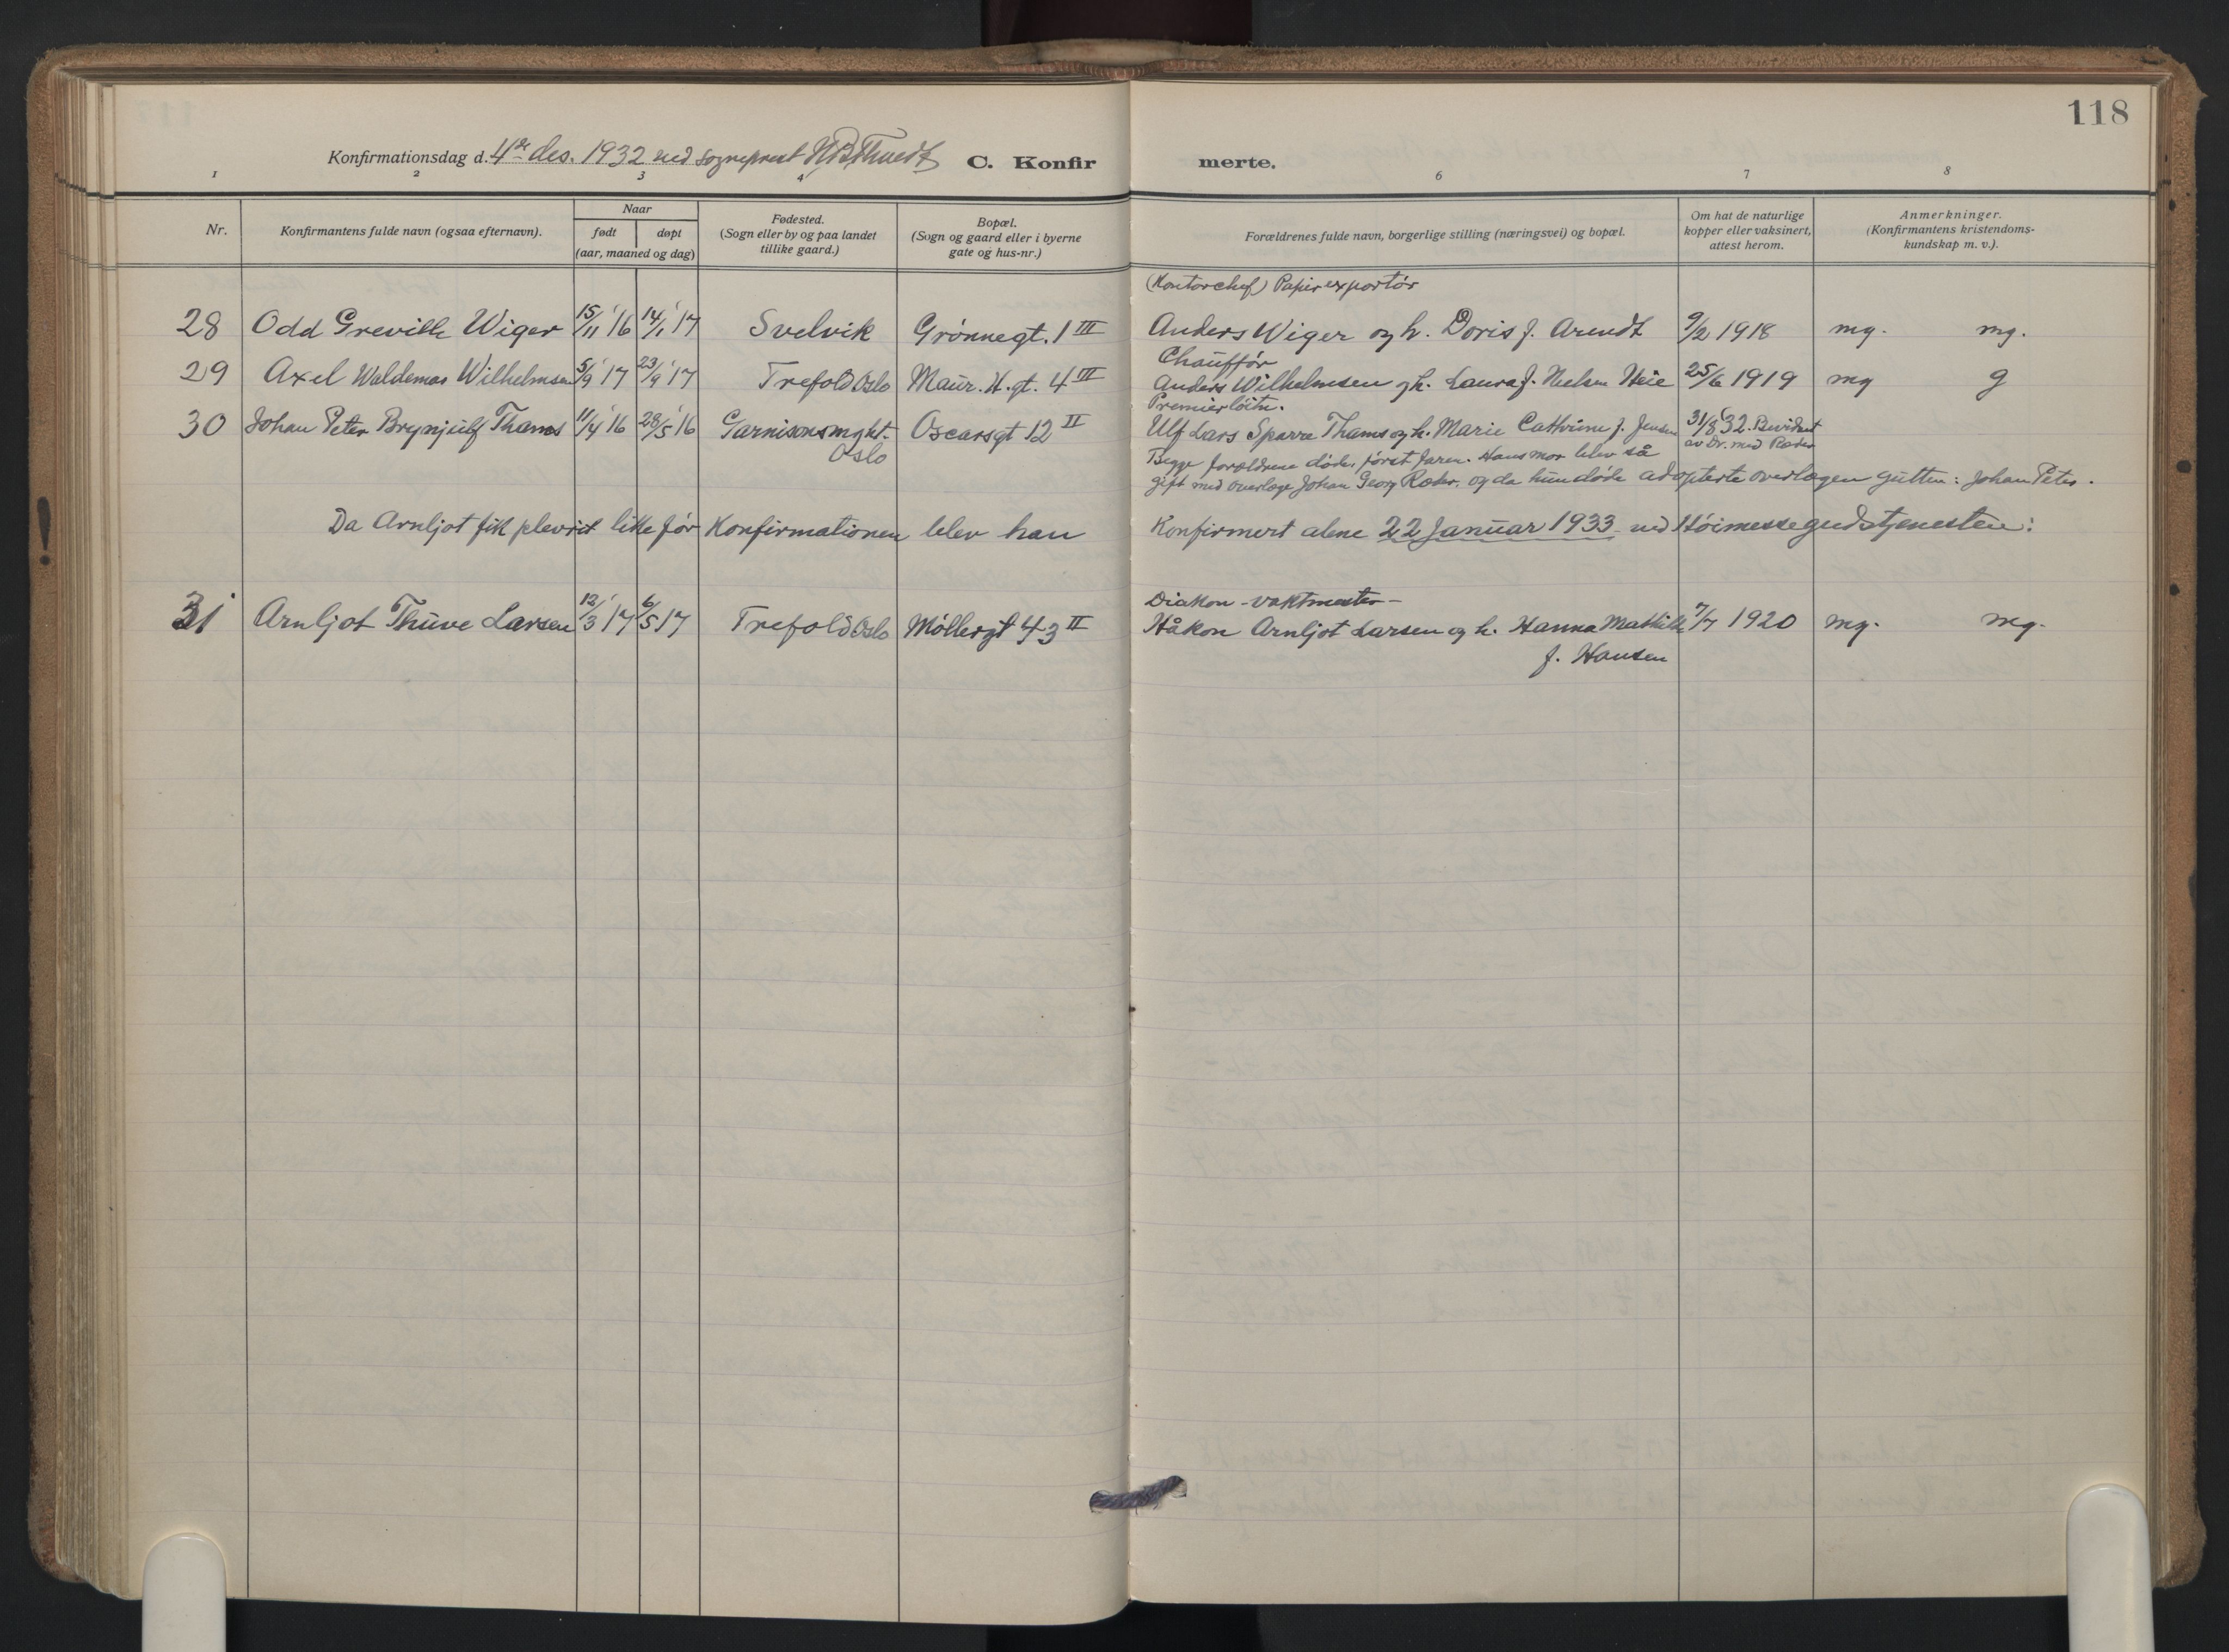 118
Konfirmationsdag d. 4de des. 1932 ved sogneprest C. Konfirmerte.
1 2 3 4 6 7 8
Nr.
Konfirmantens fulde navn (ogsaa efternavn).
Naar
født døpt
(aar, maaned og dag)
Fødested.
(Sogn eller by og paa landet
tillike gaard.)
Bopæl.
(Sogn og gaard eller i byerne
gate og hus-nr.)
Forældrenes fulde navn, borgerlige stilling (næringsvei) og bopæl.
Om hat de naturlige
kopper eller vaksinert,
attest herom.
Anmerkninger.
(Konfirmantens kristendoms-
kundskap m. v.).
(Kontorchef) Papirexportør
28 Odd Greville Wiger 15/11 '16 14/1 '17 Svelvik Grønnegt. 1 III Anders Wiger og h. Doris f. Arendt 9/2 1918 mg. mg.
Chauffør
29 Axel Waldemar Wilhelmsen 5/9 '17 23/9 '17 Trefold Oslo Maur. H. gt. 4 III Anders Wilhelmsen og h. Laura f. Nielsen Heie 25/6 1919 mg g
Premierløitn.
30 Johan Peter Brynjulf Thams 11/4 '16 28/5 '16 Garnisonsmght. Oscarsgt 12 II Ulf Lars Sparre Thams og h. Marie Cathrine f. Jensen 31/8 '32. Bevidnet
Oslo
av Dr. med Roder
Begge forældrene døde, først faren. Hans mor blev så
gift med overlæge Johan Georg Roder, og da hun døde adopterte overlægen gutten: Johan Peter.
! Da Arnljot fik plevrit like før Konfirmationen blev han Konfirmert alene 22 Januar 1933 ved Høimessegudstjenesten:
Diakon - vaktmester -
31 Arnljot Thuve Larsen 12/3 '17 6/5 17 Trefold Oslo Møllergt 43 II Håkon Arnljot Larsen og h. Hanna Mathilde 7/7 1920 mg. mg.
f. Hansen